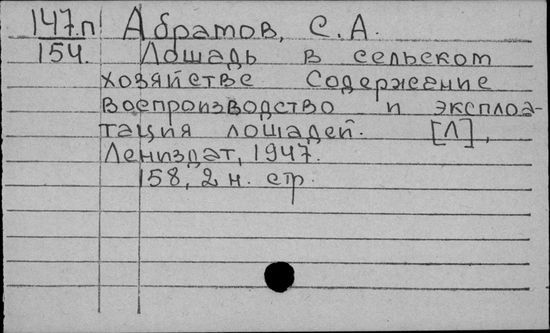 147.п Абратов, С.А.
154. Лошадь в сельском
хозяйстве Содержение
воспроизводство и эксплоа-
тация лошадей. [Л],
Лениздат, 1947.
158, 2 н. стр.